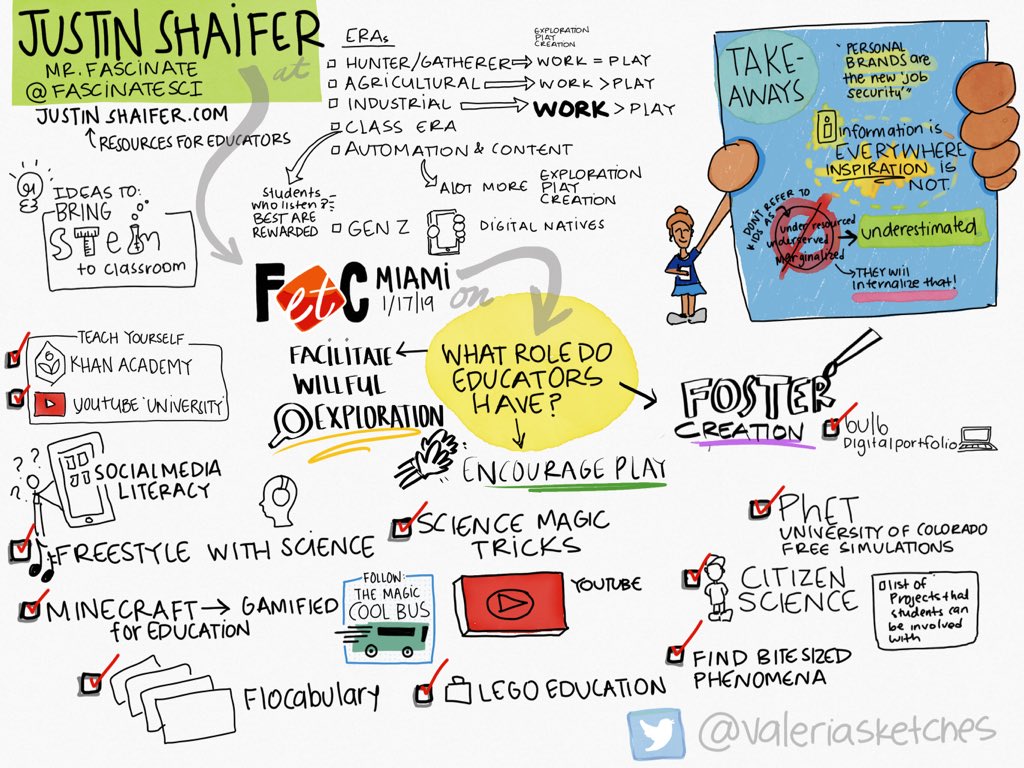 JUSTIN SHAIFER
MR. FASCINATE
@FASCINATESCI
JUSTIN SHAIFER.COM
RESOURCES FOR EDUCATORS
at
ERAs
EXPLORATION
PLAY
CREATION
HUNTER/GATHERER WORK = PLAY
AGRICULTURAL WORK > PLAY
INDUSTRIAL WORK > PLAY
CLASS ERA
AUTOMATION & CONTENT
Students
who listen?
BEST ARE
REWARDED
ALOT MORE EXPLORATION
PLAY
CREATION
GEN Z DIGITAL NATIVES
TAKE-
AWAYS
"PERSONAL
BRANDS are
the new 'job
security'"
Information is
EVERYWHERE
INSPIRATION is
NOT.
DON'T REFER TO
KIDS AS
under resourced
underserved
Marginalized
underestimated
THEY will
internalize that!
IDEAS TO:
BRING
STEM
to classroom
FETC MIAMI
1/17/19
on
WHAT ROLE DO
EDUCATORS
HAVE?
FACILITATE
WILLFUL
EXPLORATION
ENCOURAGE PLAY
FOSTER
CREATION
bulb
Digital portfolio
TEACH YOURSELF
KHAN ACADEMY
YOUTUBE 'UNIVERSITY'
? ? ? ?
SOCIAL MEDIA
LITERACY
FREESTYLE WITH SCIENCE
SCIENCE MAGIC
TRICKS
MINECRAFT → GAMIFIED
for EDUCATION
FOLLOW:
THE MAGIC
COOL BUS
YOUTUBE
Flocabulary
LEGO EDUCATION
PhET
UNIVERSITY OF COLORADO
FREE SIMULATIONS
CITIZEN
SCIENCE
list of
Projects that
students can
be involved
with
FIND BITESIZED
PHENOMENA
@valeriasketches